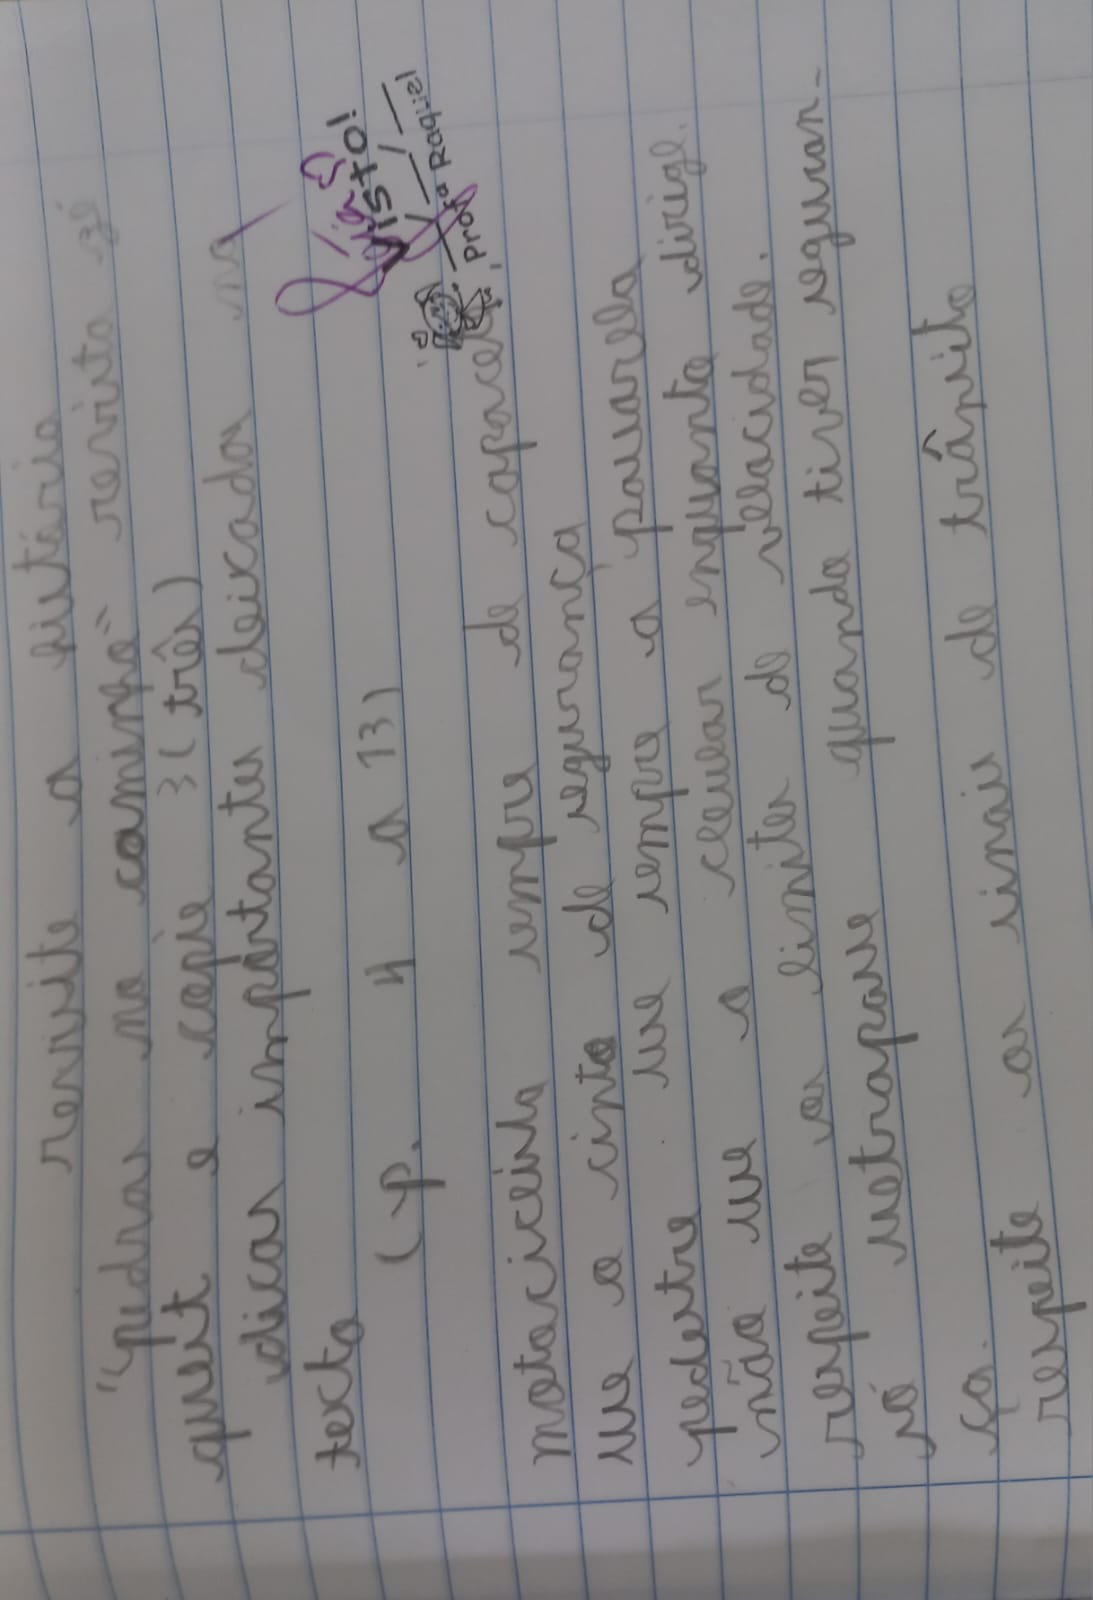 revisite a história
"pedras no caminho" revista zé
quert e copie 3 (três)
dicas importantes deixadas no
texto
(p. 4 a 13)
Visto!
Profa Raquiel
motociceista sempre de capacete
use o cinto de segurança
pedestre use sempre a passarela
não use o celular enquanto dirige.
respeite os limites de velocidade.
só ultrapasse quando tiver seguran-
ça.
respeite os sinais de trânsito